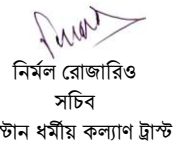 নির্মল রোজারিও
সচিব
ধর্মীয় কল্যাণ ট্রাস্ট